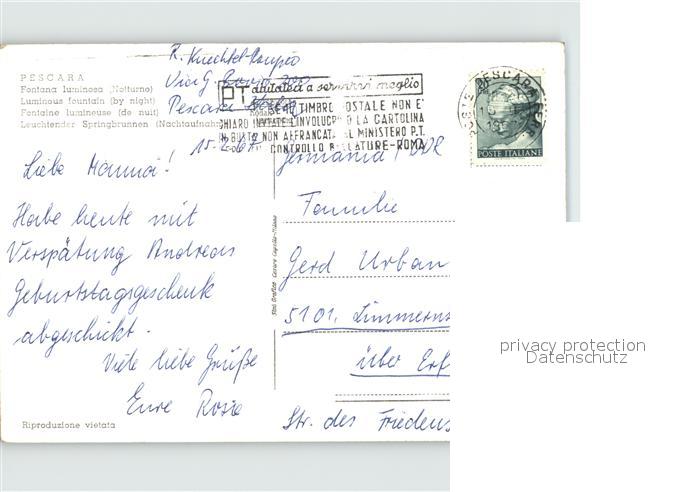 PESCARA
Fontana luminosa (Notturno)
Luminous fountain (by night)
Fontaine lumineuse (de nuit)
Leuchtender Springbrunnen (Nachtaufnah
Via G.
Pescara Italia
PT aiutateci a servirvi meglio
SE IL TIMBRO POSTALE NON E'
CHIARO INVIATE L'INVOLUCRO O LA CARTOLINA
IN BUSTA NON AFFRANCATA AL MINISTERO P.T.
CONTROLLO BOLLATURE-ROMA
POSTE ITALIANE
15.2.67
Liebe Mamma!
Habe heute mit
Verspätung Andreas
Geburtstagsgeschenk
abgeschickt.
Viele liebe Grüße
Eure Rosie
Germania / DDR
Familie
Gerd Urban
5101, Zimmerns
über Erf
Str. des Friedens
Riproduzione vietata
privacy protection
Datenschutz